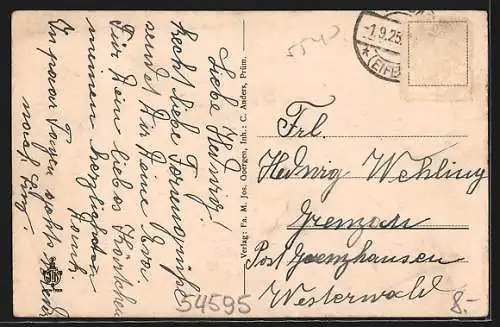 Liebe Hedwig!
Recht liebe
sendet Dir Deine Eva
Für Dein liebes Kärtchen
meinen herzlichsten
Dank.
In paar Tagen gehts wieder
nach
Verlag: Fa. M. Jos. Goergen, Inh.: C. Anders, Prüm.
-1.9.25.
(EIFEL)
5540
Frl.
Hedwig Wehling
Grenzau
Post Grenzhausen
Westerwald
54595
8.-